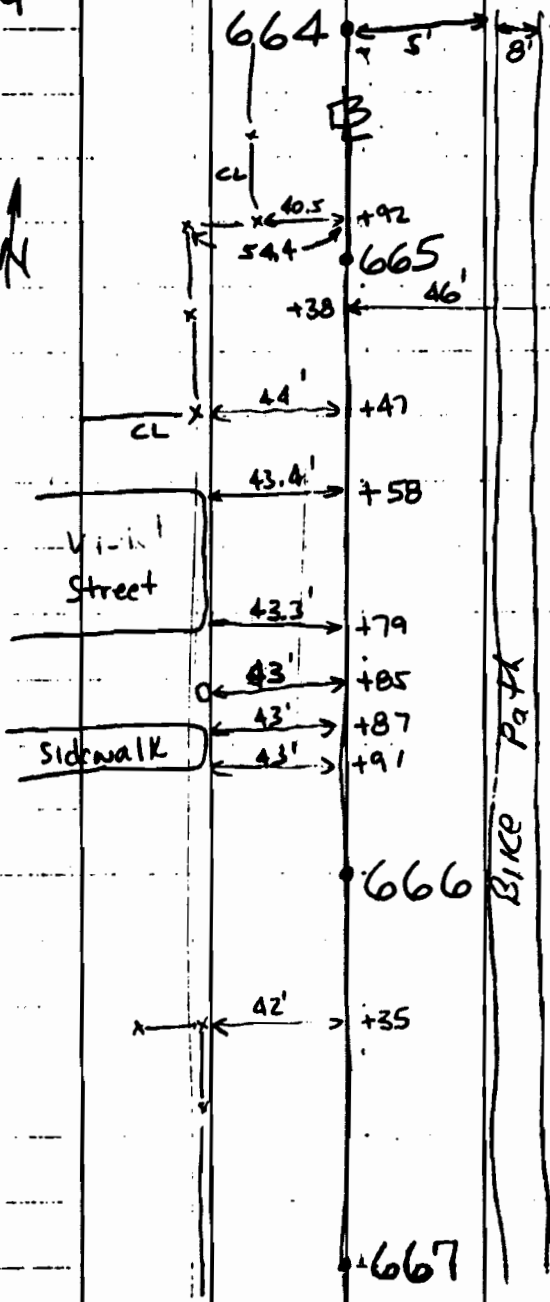 664
5'
8'
CL
40.5
+92
54.4
665
N
46'
+38
44'
+47
CL
43.4'
+58
Street
43.3'
+79
43'
+85
43'
+87
Sidewalk
43'
+91
Bike Path
666
42'
+35
667